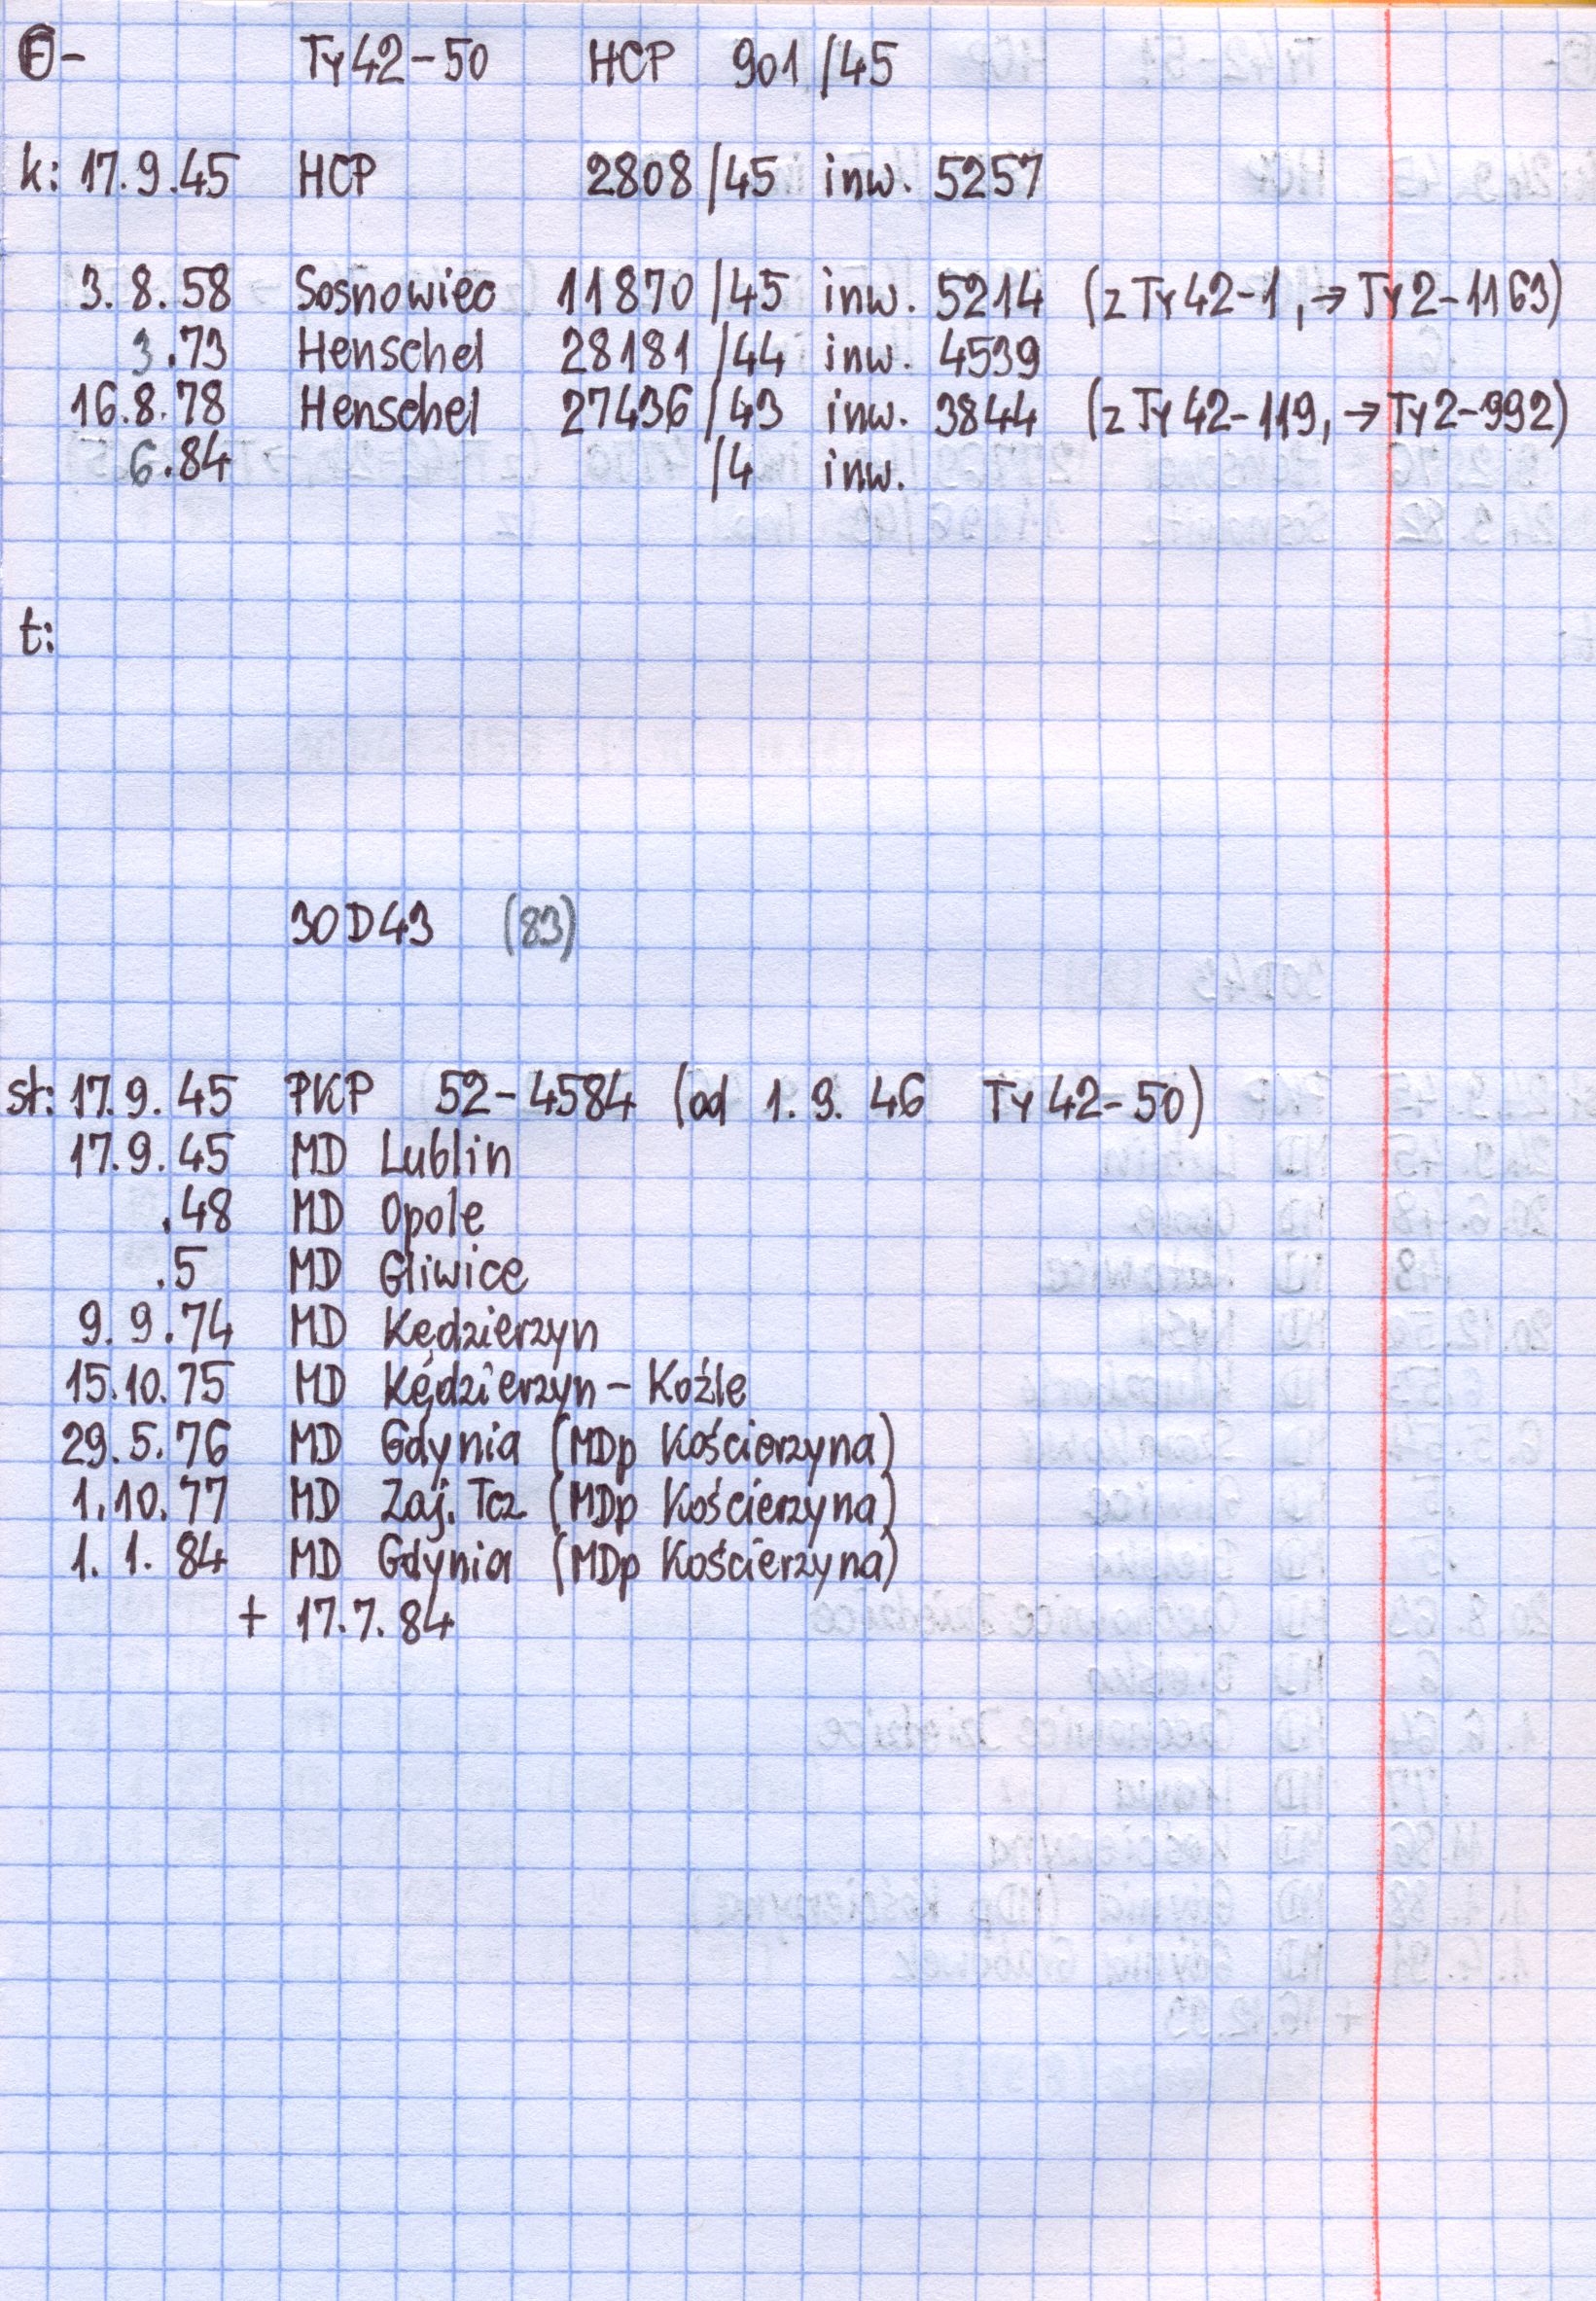 Ⓔ- Ty42-50 HCP 901/45
k: 17.9.45 HCP 2808/45 inw. 5257
3.8.58 Sosnowiec 11870/45 inw. 5214 (z Ty42-1, → Ty2-1163)
3.73 Henschel 28181/44 inw. 4539
16.8.78 Henschel 27436/43 inw. 3844 (z Ty42-119, → Ty2-992)
6.84 /4 inw.
t:
30D43 (83)
st: 17.9.45 PKP 52-4584 (od 1.9.46 Ty42-50)
17.9.45 MD Lublin
.48 MD Opole
.5 MD Gliwice
9.9.74 MD Kędzierzyn
15.10.75 MD Kędzierzyn-Koźle
29.5.76 MD Gdynia (MDp Kościerzyna)
1.10.77 MD Zaj. Tcz (MDp Kościerzyna)
1.1.84 MD Gdynia (MDp Kościerzyna)
+ 17.7.84